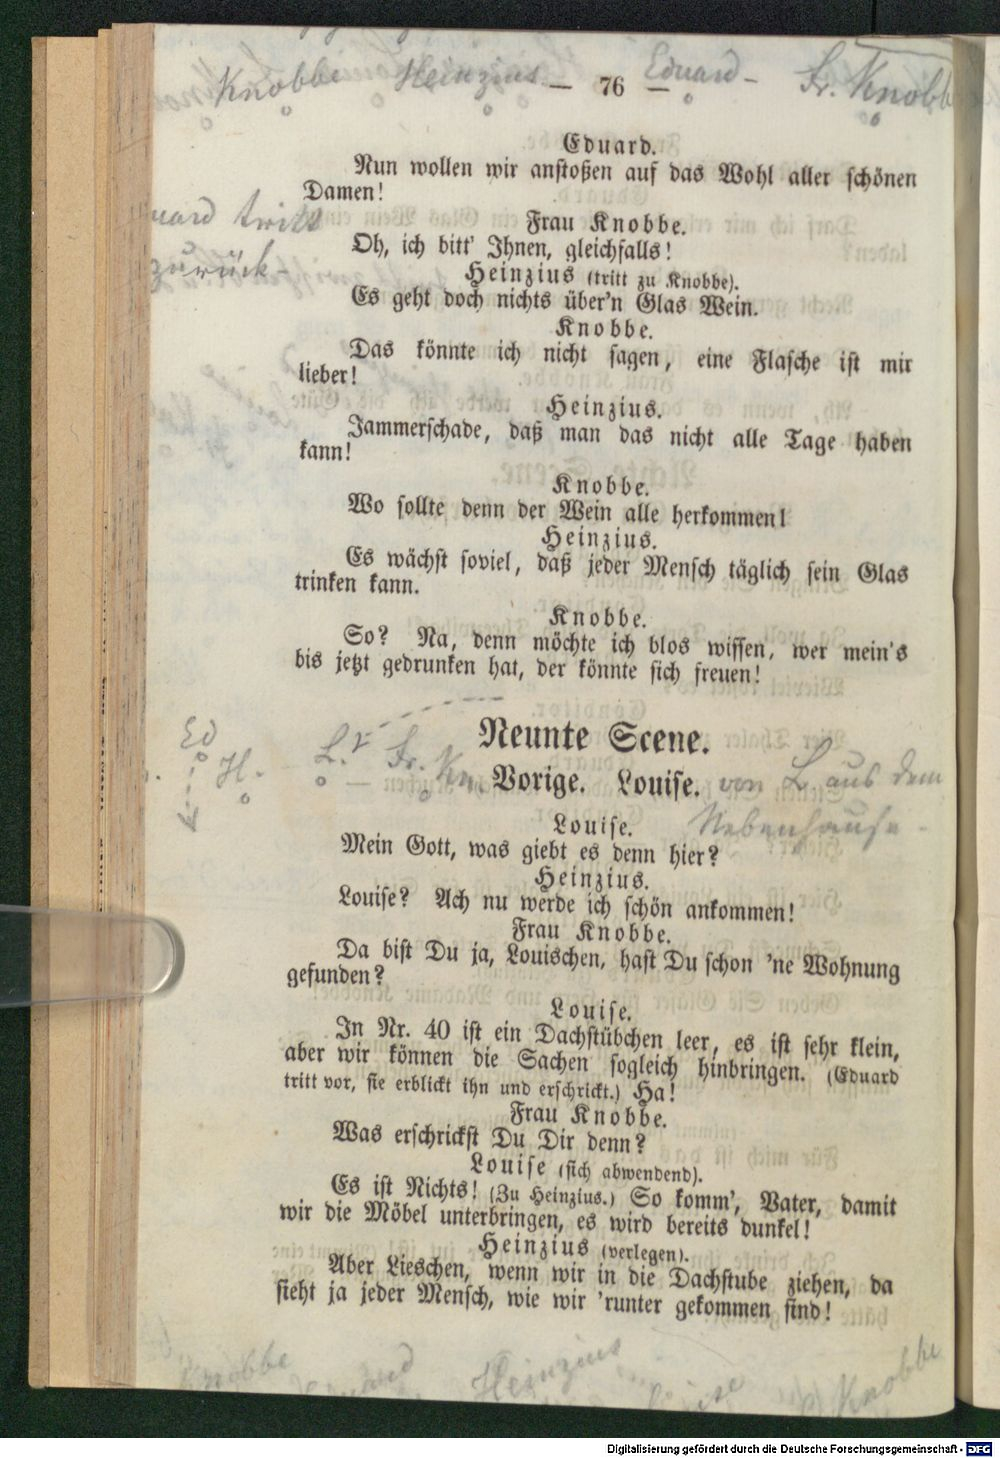 Knobbe Heinzius — 76 — Eduard – Fr. Knobbe
Eduard.
Nun wollen wir anstoßen auf das Wohl aller schönen
Damen!
tritt
zurück –
Frau Knobbe.
Oh, ich bitt' Ihnen, gleichfalls!
Heinzius (tritt zu Knobbe).
Es geht doch nichts über'n Glas Wein.
Knobbe.
Das könnte ich nicht sagen, eine Flasche ist mir
lieber!
Heinzius.
Jammerschade, daß man das nicht alle Tage haben
kann!
Knobbe.
Wo sollte denn der Wein alle herkommen!
Heinzius.
Es wächst soviel, daß jeder Mensch täglich sein Glas
trinken kann.
Knobbe.
So? Na, denn möchte ich blos wissen, wer mein's
bis jetzt gedrunken hat, der könnte sich freuen!
Neunte Scene.
Ed
H. L. Fr. Kn.
Vorige. Louise. von L aus dem
Nebenhause –
Louise.
Mein Gott, was giebt es denn hier?
Heinzius.
Louise? Ach nu werde ich schön ankommen!
Frau Knobbe.
Da bist Du ja, Louischen, hast Du schon 'ne Wohnung
gefunden?
Louise.
In Nr. 40 ist ein Dachstübchen leer, es ist sehr klein,
aber wir können die Sachen sogleich hinbringen. (Eduard
tritt vor, sie erblickt ihn und erschrickt.) Ha!
Frau Knobbe.
Was erschrickst Du Dir denn?
Louise (sich abwendend).
Es ist Nichts! (Zu Heinzius.) So komm', Vater, damit
wir die Möbel unterbringen, es wird bereits dunkel!
Heinzius (verlegen).
Aber Lieschen, wenn wir in die Dachstube ziehen, da
sieht ja jeder Mensch, wie wir 'runter gekommen sind!
Knobbe Heinzius Knobbe
Digitalisierung gefördert durch die Deutsche Forschungsgemeinschaft - DFG